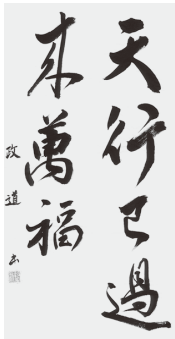 天行已過
来萬福
政道書